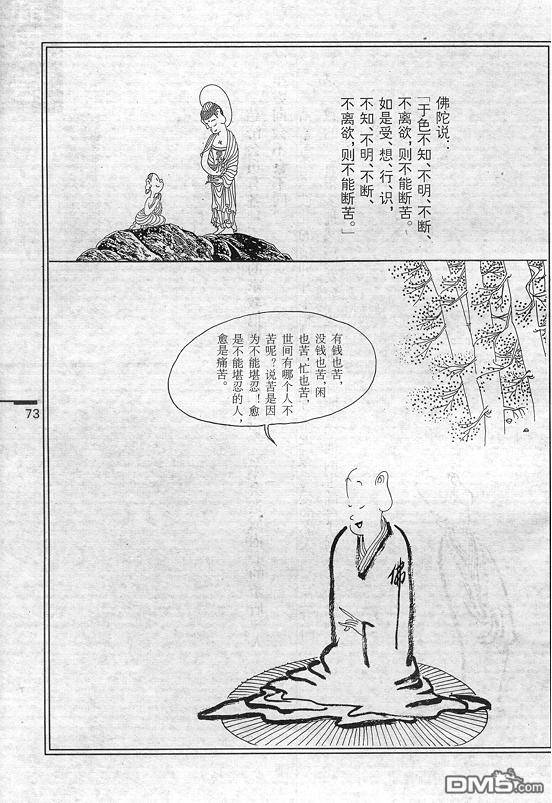 佛陀说：
「于色不知、不明、不断、
不离欲，则不能断苦。
如是受、想、行、识，
不知、不明、不断、
不离欲，则不能断苦。」
有钱也苦，
没钱也苦，闲
也苦，忙也苦，
世间有哪个人不
苦呢？说苦是因
为不能堪忍！愈
是不能堪忍的人，
愈是痛苦。
佛
73
DM5.com